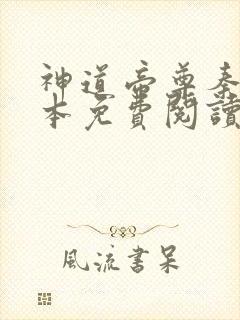 神道帝尊秦
本免費閱讀
風流書呆